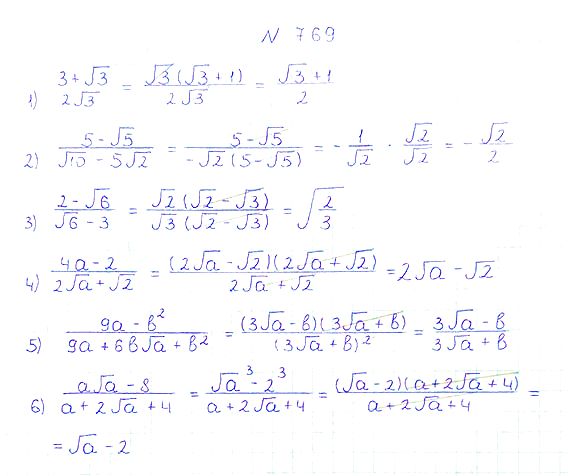 N 769
1) (3+√3)/(2√3) = (√3(√3+1))/(2√3) = (√3+1)/2
2) (5-√5)/(√10-5√2) = (5-√5)/(-√2(5-√5)) = -1/√2 · √2/√2 = -√2/2
3) (2-√6)/(√6-3) = (√2(√2-√3))/(√3(√2-√3)) = √(2/3)
4) (4a-2)/(2√a+√2) = ((2√a-√2)(2√a+√2))/(2√a+√2) = 2√a-√2
5) (9a-b²)/(9a+6b√a+b²) = ((3√a-b)(3√a+b))/(3√a+b)² = (3√a-b)/(3√a+b)
6) (a√a-8)/(a+2√a+4) = (√a³-2³)/(a+2√a+4) = ((√a-2)(a+2√a+4))/(a+2√a+4) =
= √a-2